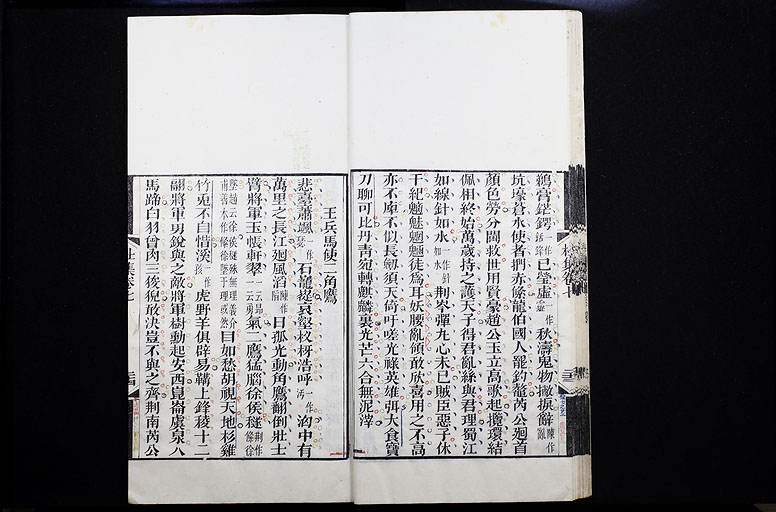 鵜膏鋩鍔一作鋒已瑩虛一作靈秋濤鬼物撇捩辭陳作亂
坑壕蒼水使者捫赤絛龍伯國人罷釣鼇芮公迴首
顏色勞分閫救世用賢豪趙公玉立高歌起攬環結
佩相終始萬歲持之護天子得君亂絲與君理蜀江
如線針如水一作針如水荆岑彈丸心未已賊臣惡子休
干紀魑魅魍魎徒為耳妖腰亂領敢欣喜用之不高
亦不庳不似長劒須天倚吁嗟光祿英雄弭大食寶
刀聊可比丹青宛轉麒麟裏光芒六合無泥滓
王兵馬使二角鷹
悲臺蕭颯一作瑟石巃嵸哀壑杈枒浩呼一作洶中有
萬里之長江迴風滔陳作陷日孤光動角鷹翻倒壯士
臂將軍玉帳軒翠一云昂一云勇氣二鷹猛腦徐侯穟荆作條徐
墜趙云徐侯穟殊無理義介甫善本作絛徐墜于理或然目如愁胡視天地杉雞
竹兔不自惜溪一作孩虎野羊俱辟易鞲上鋒稜十二
翮將軍勇銳與之敵將軍樹勳起安西崑崙虞泉入
馬蹄白羽曾肉三狻猊敢決豈不與之齊荆南芮公
杜集卷七